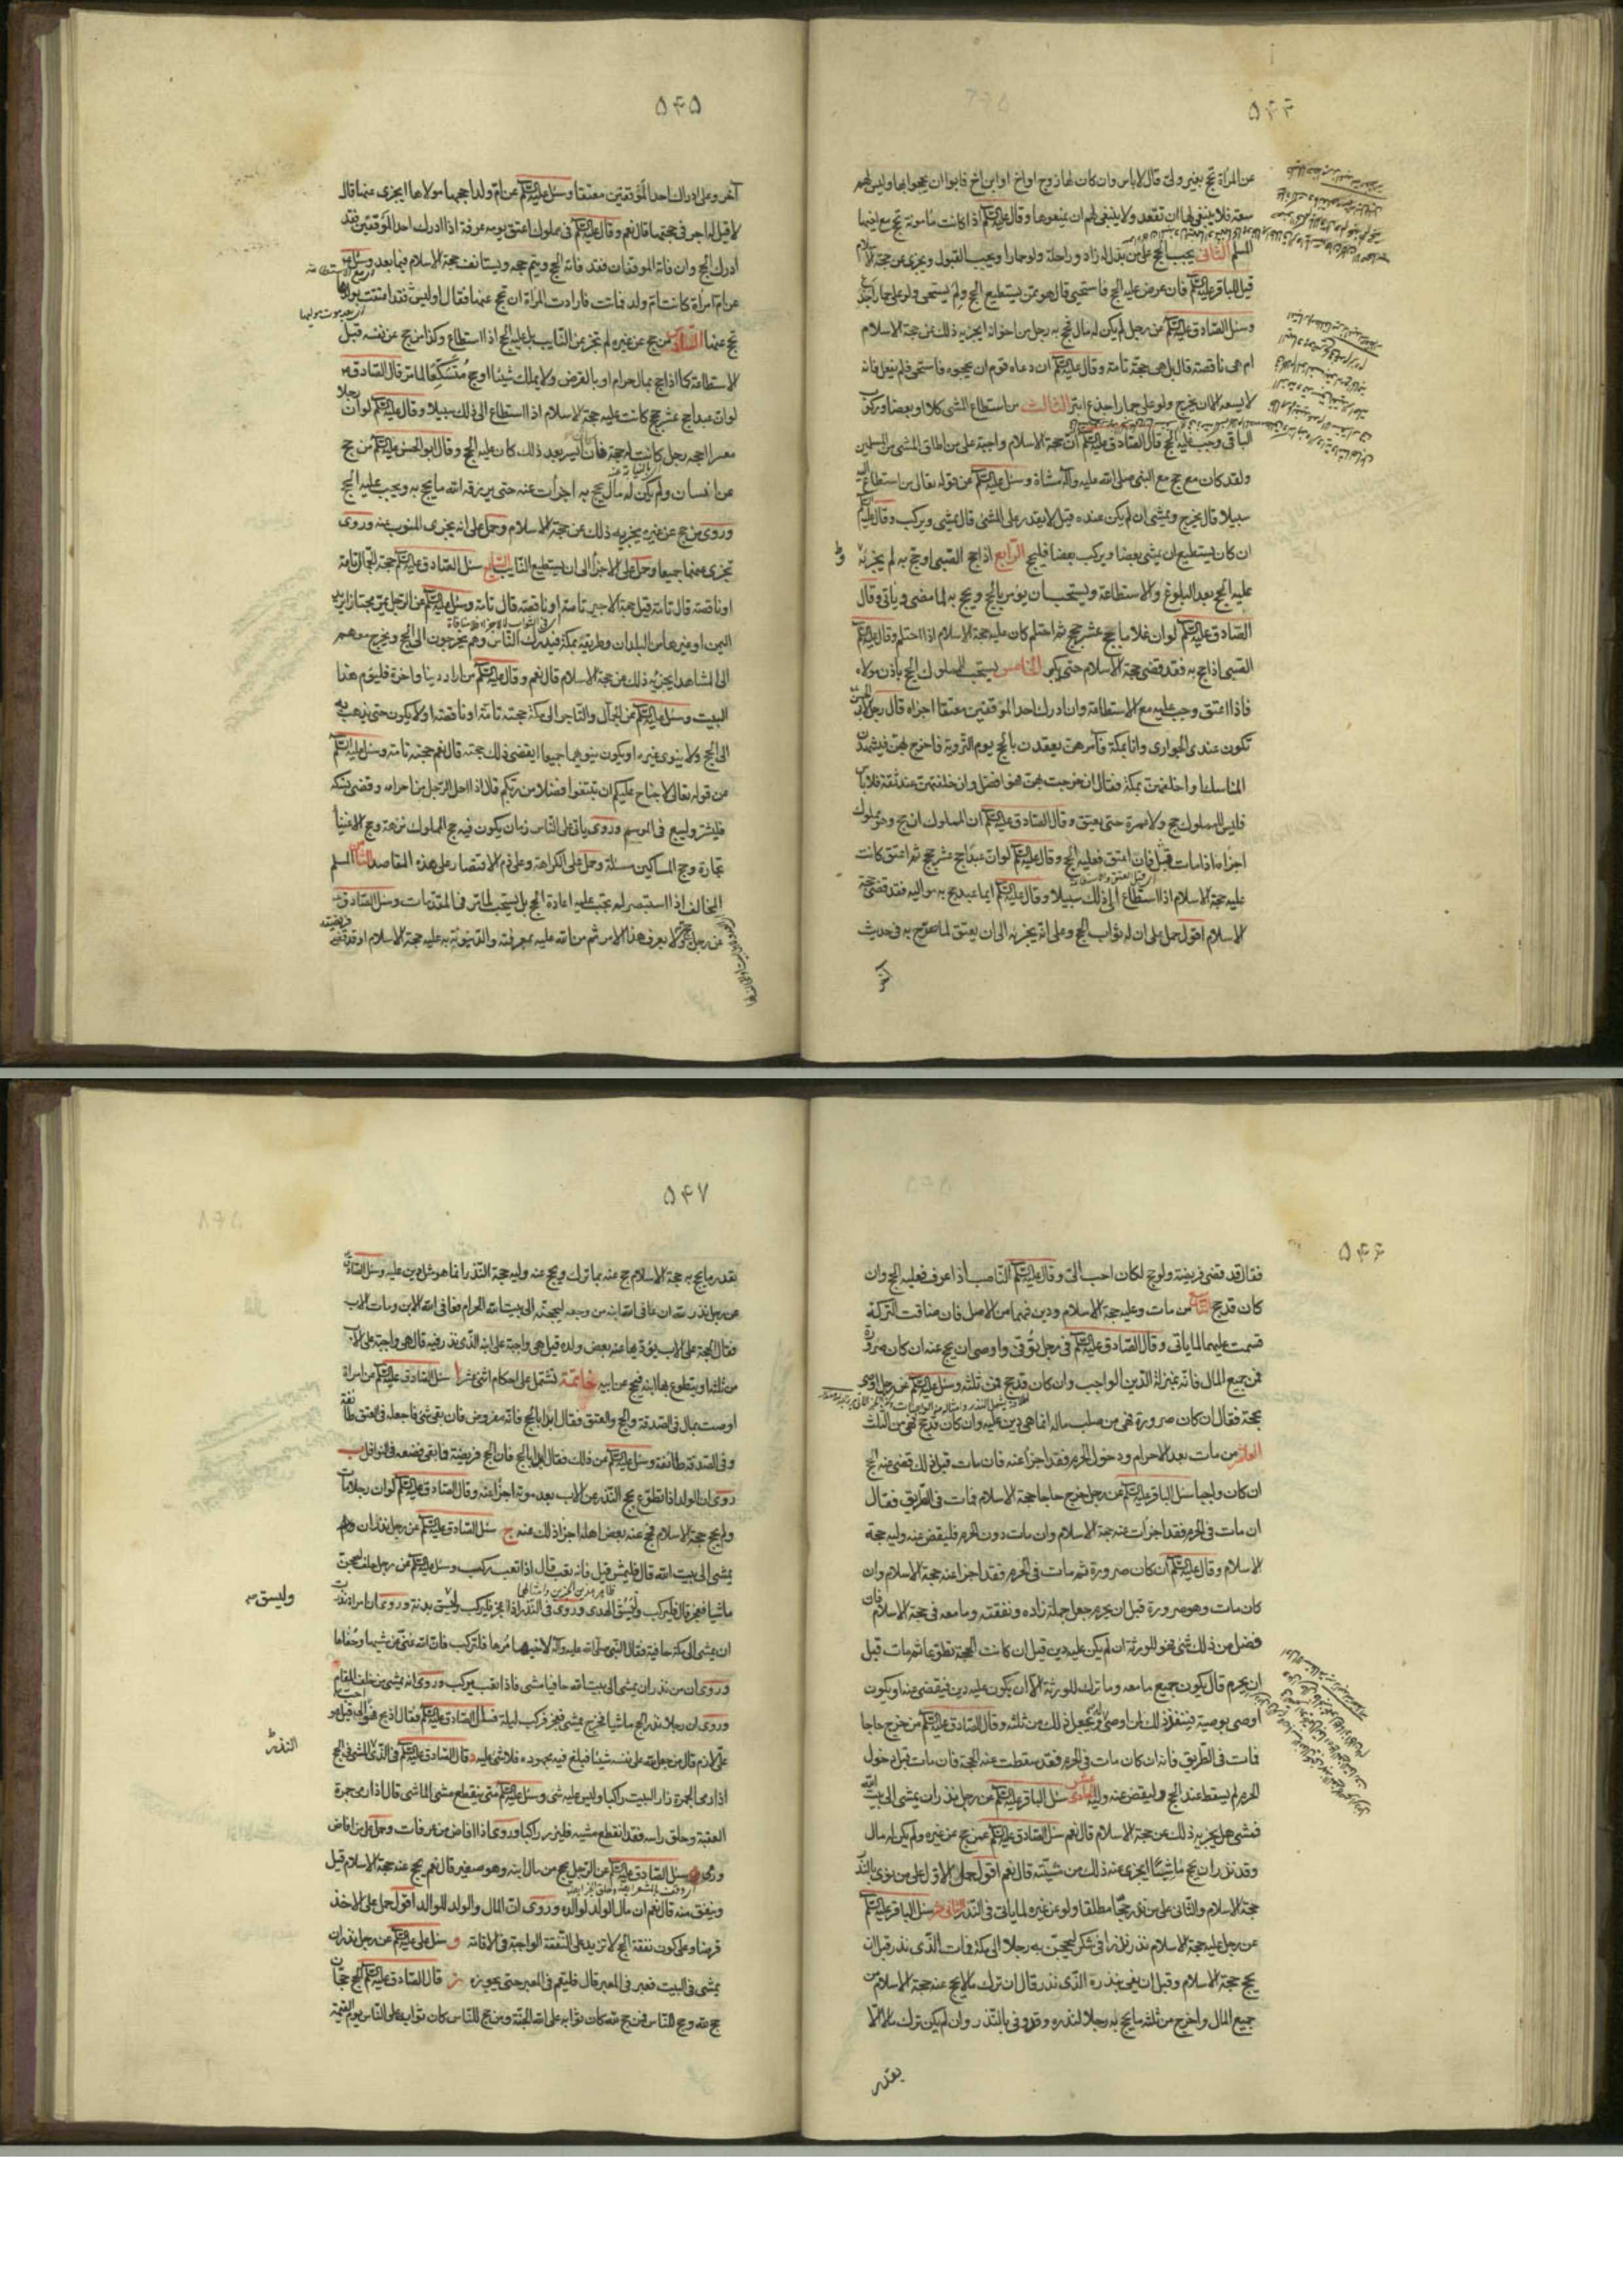 ۵۴۴
عن المرأة تحج بغير ولى قال لا باس وان كان لها زوج او اخ او ابن اخ فابوا ان يحجوا بها وليس لهم
سعة فلا ينبغي لها ان تقعد ولا ينبغي لهم ان يمنعوها وقال عليه السلام اذا كانت مأمونة تحج مع اخيها
المسلم الثانى يجب الحج على من بذل له زاد وراحلة ولو حمارا ويجب القبول ويجزى عن حجة الاسلام
قيل للباقر عليه السلام فان عرض عليه الحج فاستحيى قال هو ممن يستطيع الحج ولم يستحيى ولو على حمار اجدع
وسئل الصادق عليه السلام عن رجل لم يكن له مال فحج به رجل من اخوانه ايجزيه ذلك عن حجة الاسلام
ام هى ناقصة قال بل هى حجة تامة وقال عليه السلام ان دعاه قوم ان يحجوه فاستحيى فلم يفعل فانه
لا يسعه الا ان يخرج ولو على حمار اجدع ابتر الثالث من استطاع المشى كلا او بعضا وركوب
الباقى وجب عليه الحج قال الصادق عليه السلام ان حجة الاسلام واجبة على من اطاق المشى من المسلمين
ولقد كان مع حج مع النبي صلى الله عليه وآله مشاة وسئل عليه السلام عن قوله تعالى من استطاع اليه
سبيلا قال يخرج ويمشى ان لم يكن عنده قيل لا يقدر على المشى قال يمشى ويركب وقال عليه السلام
ان كان يستطيع ان يمشى بعضا ويركب بعضا فليحج الرابع اذا حج الصبى او حج به لم يجزئه
عليه الحج بعد البلوغ والاستطاعة ويستحب ان يؤمر بالحج ويحج به لما مضى وياتى وقال
الصادق عليه السلام لو ان غلاما حج عشر حجج ثم احتلم كان عليه حجة الاسلام اذا احتلم وقال عليه السلام
الصبى اذا حج به فقد قضى حجة الاسلام حتى يكبر الخامس يستحب للمملوك الحج باذن مولاه
فاذا اعتق وجب عليه مع الاستطاعة وان ادرك احد الموقفين معتقا اجزاه قال رجل لابى الحسن
تكون عندى الجوارى وانا بمكة فآمرهن يعقدن بالحج يوم التروية فاخرج بهن فيشهدن
المناسك او اخلفهن بمكة فقال ان خرجت بهن فهو افضل وان خلفتهن عند ثقة فلا باس
فليس للمملوك حج ولا عمرة حتى يعتق وقال الصادق عليه السلام ان المملوك ان حج وهو مملوك
اجزاه اذا مات قبل فان اعتق فعليه الحج وقال عليه السلام لو ان عبدا حج عشر حجج ثم اعتق كانت
عليه حجة الاسلام اذا استطاع الى ذلك سبيلا وقال عليه السلام ايما عبد حج به مواليه فقد قضى حجة
الاسلام اقول حمل على ان له ثواب الحج وعلى انه يجزيه الى ان يعتق لما صرح به فى حديث
آخر
۵۴۵
آخر وعلى ادراك احد الموقفين معتقا وسئل عليه السلام عن ام ولد احجها مولاها ايجزى عنها قال
لا قيل له اجر فى حجتها قال نعم وقال عليه السلام فى مملوك اعتق يوم عرفة اذا ادرك احد الموقفين فقد
ادرك الحج وان فاته الموقفان فقد فاته الحج ويتم حجه ويستانف حجة الاسلام فيما بعد وسئل
عن ام امرأة كانت ام ولد فماتت فارادت المرأة ان تحج عنها فقال اوليس قد اعتقت بولدها
تحج عنها السادس من حج عن غيره لم تجز عن النايب بل عليه الحج اذا استطاع وكذا من حج عن نفسه قبل
الاستطاعة كما اذا حج بمال حرام او بالقرض ولا يملك شيئا او حج متسكعا لما مر قال الصادق
لو ان عبدا حج عشر حجج كانت عليه حجة الاسلام اذا استطاع الى ذلك سبيلا وقال عليه السلام لو ان رجلا
معسرا احجه رجل كانت له حجة فان ايسر بعد ذلك كان عليه الحج وقال ابو الحسن عليه السلام من حج
عن انسان ولم يكن له مال يحج به اجزات عنه حتى يرزقه الله ما يحج به ويجب عليه الحج
وروى من حج عن غيره يجزيه ذلك عن حجة الاسلام وحمل على انه يجزى المنوب عنه وروى
تجزى عنهما جميعا وحمل على الاجزاء الى ان يستطيع النايب السابع سئل الصادق عليه السلام حجة الجمال تامة
او ناقصة قال تامة قيل حجة الاجير تامة او ناقصة قال تامة وسئل عليه السلام عن الرجل يمر مجتازا يريد
اليمن او غيرها من البلدان وطريقه بمكة فيدرك الناس وهم يخرجون الى الحج ويخرج معهم
الى المشاهد ايجزيه ذلك من حجة الاسلام قال نعم وقال عليه السلام من اراد دينا واخرة فليؤم هذا
البيت وسئل عليه السلام عن الجمال والتاجر الى مكة حجته تامة او ناقصة اولا يكون حتى يذهب به
الى الحج ولا ينوى غيره او يكون ينويهما جميعا ايقضى ذلك حجته قال نعم حجته تامة وسئل عليه السلام
عن قوله تعالى لا جناح عليكم ان تبتغوا فضلا من ربكم قال اذا احل الرجل من احرامه وقضى نسكه
فليشتر وليبع فى الموسم وروى ياتى على الناس زمان يكون فيه حج الملوك نزهة وحج الاغنياء
تجارة وحج المساكين مسئلة وحمل على الكراهة وعلى ذم الاقتصار على هذه المقاصد الثامن المسلم
المخالف اذا استبصر لم يجب عليه اعادة الحج بل يستحب لما مر فى المقدمات وسئل الصادق
عن رجل حج ولا يعرف هذا الامر ثم من الله عليه بمعرفته والدينونة به عليه حجة الاسلام او قد قضى فريضته
۵۴۶
فقال قد قضى فريضة ولو حج لكان احب الى وقال عليه السلام الناصب اذا عرف فعليه الحج وان
كان قد حج التاسع من مات وعليه حجة الاسلام ودين فهما من الاصل فان ضاقت التركة
قسمت عليهما لما ياتى وقال الصادق عليه السلام فى رجل توفى واوصى ان يحج عنه ان كان صرورة
فمن جميع المال فانه بمنزلة الدين الواجب وان كان قد حج فمن ثلثه وسئل عليه السلام عن رجل اوصى
بحجة فقال ان كان صرورة فهى من صلب ماله انما هى دين عليه وان كان قد حج فهى من الثلث
العاشر من مات بعد الاحرام ودخول الحرم فقد اجزأ عنه فان مات قبل ذلك قضى عنه الحج
ان كان واجبا سئل الباقر عليه السلام عن رجل خرج حاجا حجة الاسلام فمات فى الطريق فقال
ان مات فى الحرم فقد اجزات عنه حجة الاسلام وان مات دون الحرم فليقض عنه وليه حجة
الاسلام وقال عليه السلام ان كان صرورة ثم مات فى الحرم فقد اجزا عنه حجة الاسلام وان
كان مات وهو صرورة قبل ان يحرم جعل جمله وزاده ونفقته وما معه فى حجة الاسلام فان
فضل من ذلك شئ فهو للورثة ان لم يكن عليه دين قيل ان كانت الحجة تطوعا ثم مات قبل
ان يحرم قال يكون جميع ما معه وما ترك للورثة الا ان يكون عليه دين فيقضى عنه او يكون
اوصى بوصية فينفذ ذلك لمن اوصى له ويجعل ذلك من ثلثه وقال الصادق عليه السلام من خرج حاجا
فمات فى الطريق فانه ان كان مات فى الحرم فقد سقطت عنه الحجة فان مات قبل دخول
الحرم لم يسقط عنه الحج وليقض عنه وليه الحادى عشر سئل الباقر عليه السلام عن رجل نذر ان يمشى الى بيت الله
فمشى هل يجزيه ذلك عن حجة الاسلام قال نعم سئل الصادق عليه السلام عمن حج عن غيره ولم يكن له مال
وقد نذر ان يحج ماشيا ايجزى عنه ذلك من مشيته قال نعم اقول حمل الاول على من نوى بالنذر
حجة الاسلام والثانى على من نذر حجا مطلقا ولو عن غيره لما ياتى فى النذر الثانى عشر سئل الباقر عليه السلام
عن رجل عليه حجة الاسلام نذر نذرا فى شكر ليحجن به رجلا الى مكة فمات الذى نذر قبل ان
يحج حجة الاسلام وقبل ان يفى بنذره الذى نذر قال ان ترك مالا يحج عنه حجة الاسلام من
جميع المال واخرج من ثلثه ما يحج به رجلا لنذره وقد وفى بالنذر وان لم يكن ترك مالا الا
بقدر
۵۴۷
بقدر ما يحج به حجة الاسلام حج عنه بما ترك ويحج عنه وليه حجة النذر انما هو مثل دين عليه وسئل الصادق
عن رجل نذر لله ان عافى الله ابنه من وجعه ليحجنه الى بيت الله الحرام فعافى الله الابن ومات الاب
فقال الحجة على الاب يؤديها عنه بعض ولده قيل هى واجبة على ابنه الذى نذر فيه قال هى واجبة على الاب
من ثلثه او يتطوع بها ابنه فيحج عن ابيه خاتمة تشتمل على احكام اثنى عشر ا سئل الصادق عليه السلام عن امراة
اوصت بمال فى الصدقة والحج والعتق فقال ابدا بالحج فانه مفروض فان بقى شئ فاجعله فى العتق طائفة
وفى الصدقة طائفة وسئل عليه السلام عن ذلك فقال ابدا بالحج فان الحج فريضة فما بقى فضعه فى النوافل ب
روى ان الولد اذا تطوع بحج النذر عن الاب بعد موته اجزا عنه وقال الصادق عليه السلام لو ان رجلا مات
ولم يحج حجة الاسلام فحج عنه بعض اهله اجزا ذلك عنه ج سئل الصادق عليه السلام عن رجل نذر ان
يمشى الى بيت الله قال فليمش قيل فانه تعب قال اذا تعب ركب وسئل عليه السلام عن رجل حلف ليحجن
ماشيا فعجز قال فليركب وليسق الهدى وروى فى النذر اذا عجز فليركب وليسق بدنة وروى ان امراة نذرت
وليسق
ان يمشى الى مكة حافية فقال النبى صلى الله عليه وآله لاخيها مرها فلتركب فان الله غنى عن مشيها وحفاها
وروى ان من نذر ان يمشى الى بيت الله حافيا مشى فاذا تعب ركب وروى انه يمشى من خلف المقام
وروى ان رجلا نذر الحج ماشيا فخرج يمشى فعجز فركب ليلة فسأل الصادق عليه السلام فقال اذبح فهو احب الى قيل هو
على لازم قال من جعل لله على نفسه شيئا فبلغ فيه مجهوده فلا شئ عليه د قال الصادق عليه السلام فى الذى المشى فى الحج
النذر
اذا رمى الجمرة زار البيت راكبا وليس عليه شئ وسئل عليه السلام متى ينقطع مشى الماشى قال اذا رمى جمرة
العقبة وحلق راسه فقد انقطع مشيه فليزر راكبا وروى اذا افاض من عرفات وحمل على من افاض
ورمى ه سئل الصادق عليه السلام عن الرجل يحج من مال ابنه وهو صغير قال نعم يحج عنه حجة الاسلام قيل
وينفق منه قال نعم ان مال الولد لوالده وروى ان المال والولد للوالد اقول حمل على الاخذ
قرضا وعلى كون نفقة الحج لا تزيد على النفقة الواجبة فى الاقامة و سئل على عليه السلام عن رجل نذر ان
يمشى فى البيت فعبر فى المعبر قال فليقم فى المعبر حتى يجوزه ز قال الصادق عليه السلام الحج حجان
حج لله وحج للناس فمن حج لله كان ثوابه على الله الجنة ومن حج للناس كان ثوابه على الناس يوم القيمة